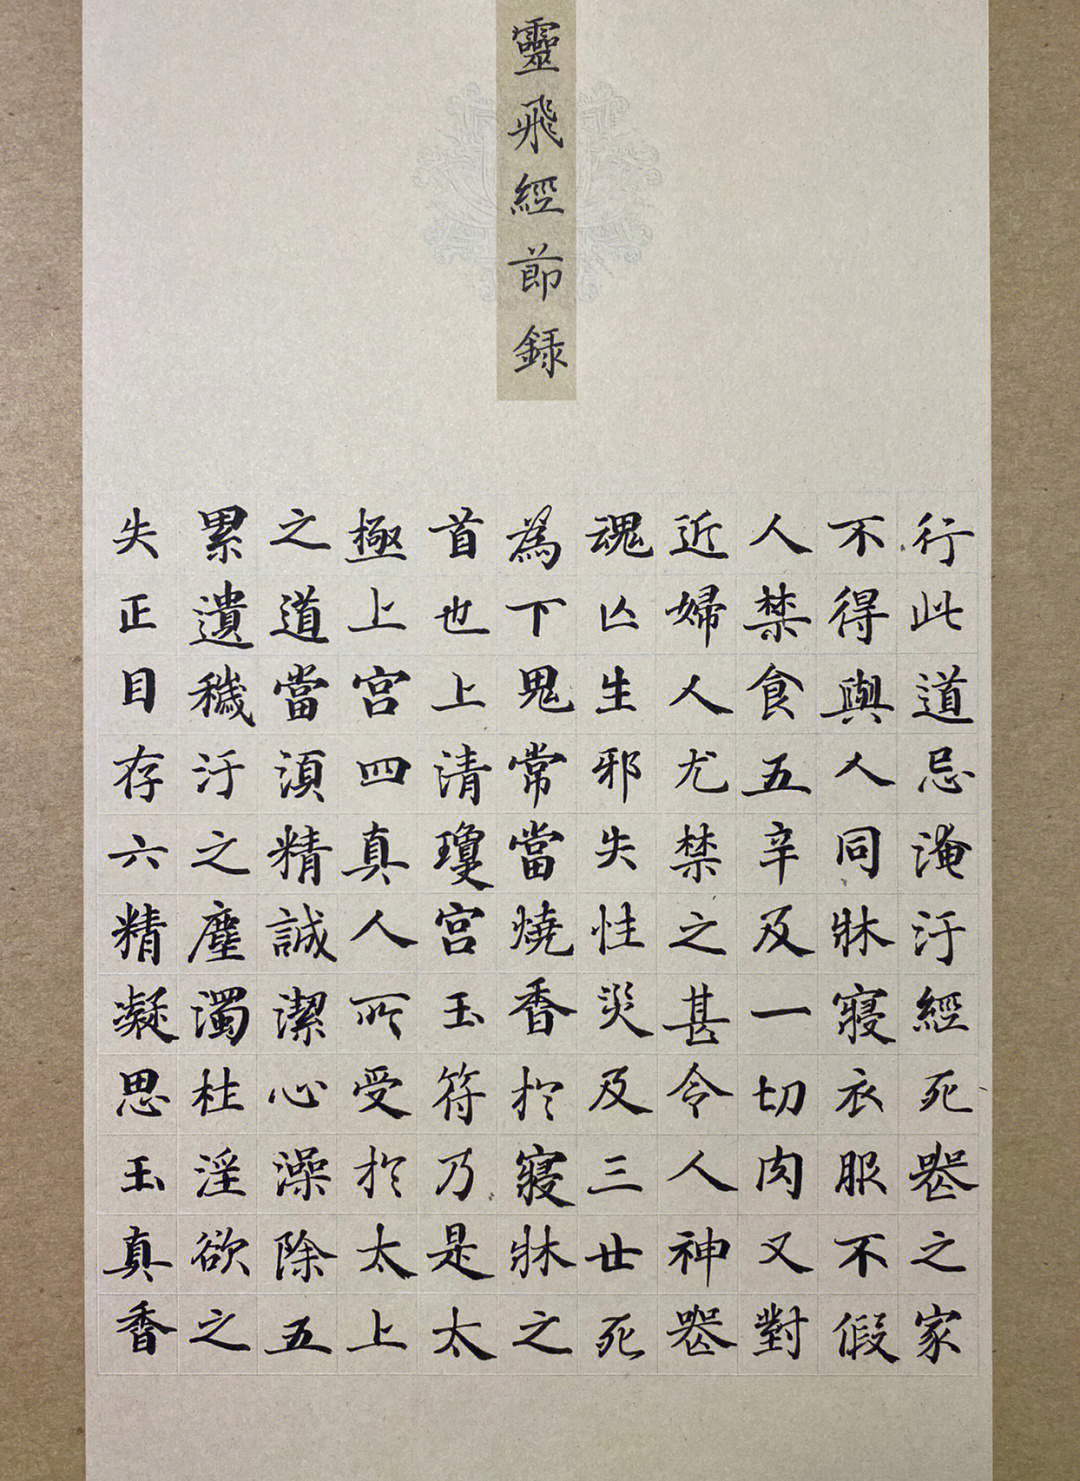 靈飛經節録
行此道忌淹汙經死喪之家
不得與人同牀寢衣服不假
人禁食五辛及一切肉又對
近婦人尤禁之甚令人神喪
魂亾生邪失性災及三世死
為下鬼常當燒香於寢牀之
首也上清瓊宮玉符乃是太
極上宮四真人所受於太上
之道當須精誠潔心澡除五
累遺穢汙之塵濁杜淫欲之
失正目存六精凝思玉真香